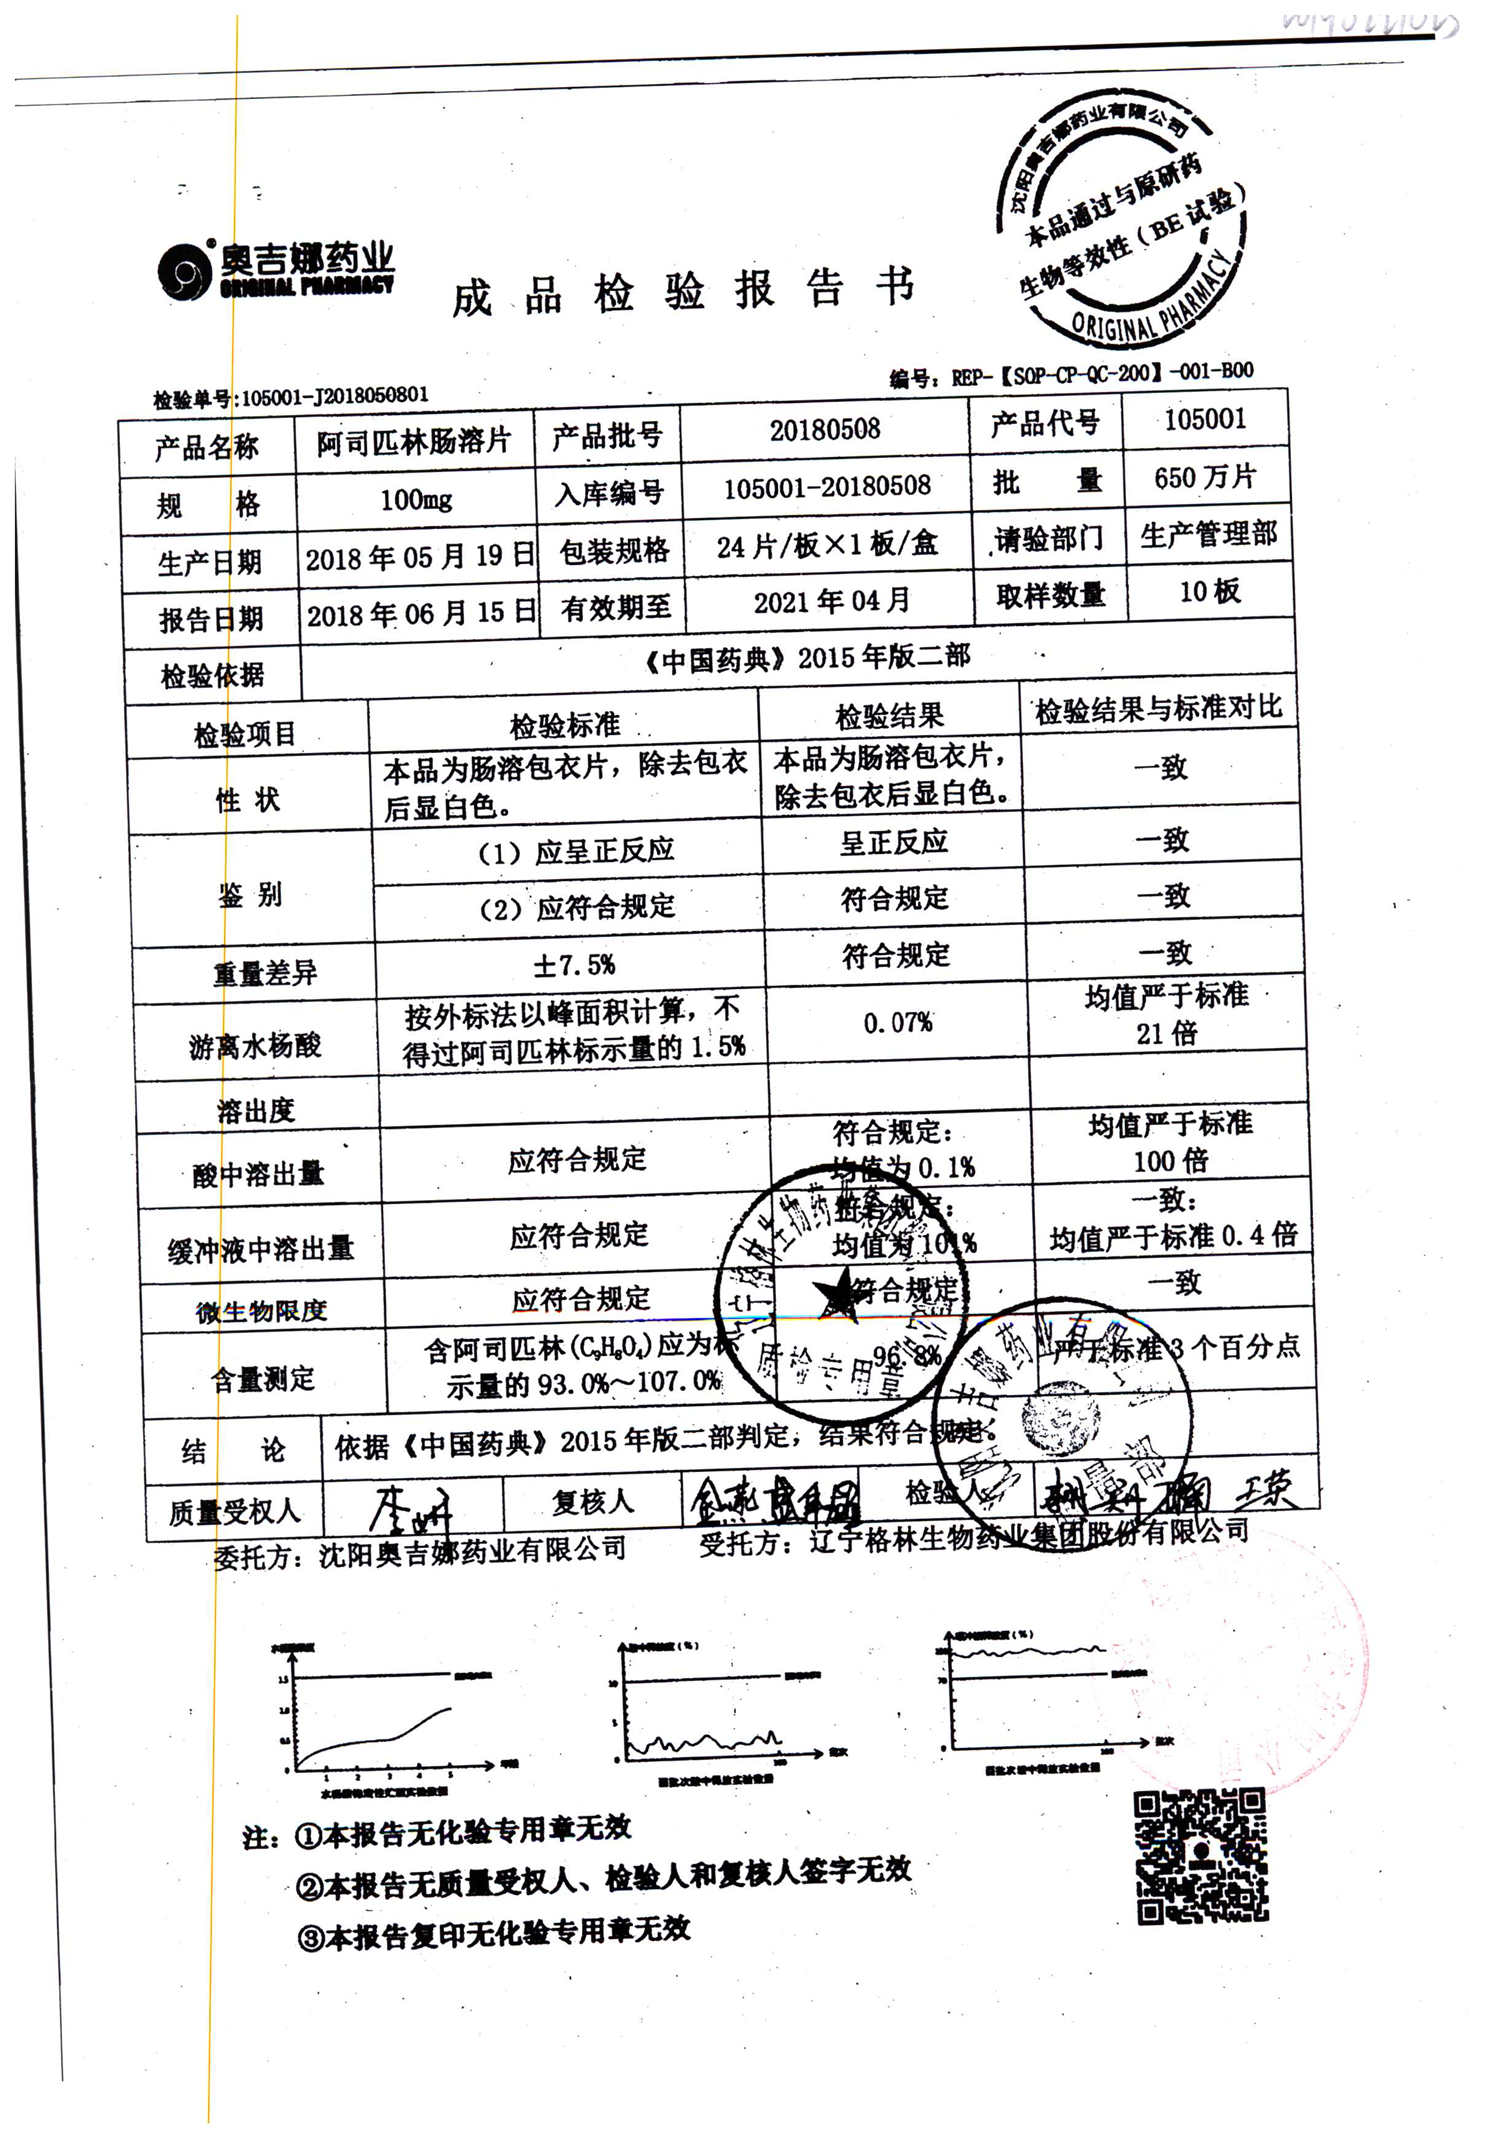 沈阳奥吉娜药业有限公司
本品通过与原研药
生物等效性（BE试验）
ORIGINAL PHARMACY
奥吉娜药业
ORIGINAL PHARMACY
成品检验报告书
检验单号:105001-J2018050801
编号：REP-【SOP-CP-QC-200】-001-B00
产品名称 阿司匹林肠溶片 产品批号 20180508 产品代号 105001
规 格 100mg 入库编号 105001-20180508 批 量 650万片
生产日期 2018年05月19日 包装规格 24片/板×1板/盒 请验部门 生产管理部
报告日期 2018年06月15日 有效期至 2021年04月 取样数量 10板
检验依据 《中国药典》2015年版二部
检验项目 检验标准 检验结果 检验结果与标准对比
性 状 本品为肠溶包衣片，除去包衣后显白色。 本品为肠溶包衣片，除去包衣后显白色。 一致
鉴 别 （1）应呈正反应 呈正反应 一致
（2）应符合规定 符合规定 一致
重量差异 ±7.5% 符合规定 一致
游离水杨酸 按外标法以峰面积计算，不得过阿司匹林标示量的1.5% 0.07% 均值严于标准21倍
溶出度
酸中溶出量 应符合规定 符合规定：均值为0.1% 均值严于标准100倍
缓冲液中溶出量 应符合规定 符合规定：均值为101% 一致：均值严于标准0.4倍
微生物限度 应符合规定 符合规定 一致
含量测定 含阿司匹林(C₉H₈O₄)应为标示量的93.0%～107.0% 96.8% 严于标准3个百分点
结 论 依据《中国药典》2015年版二部判定，结果符合规定。
质量受权人 复核人 检验人
质检专用章
委托方：沈阳奥吉娜药业有限公司 受托方：辽宁格林生物药业集团股份有限公司
1.5
1.0
0.5
0
1 2 3 4 5
10
5
0
100
70
0
注：①本报告无化验专用章无效
②本报告无质量受权人、检验人和复核人签字无效
③本报告复印无化验专用章无效